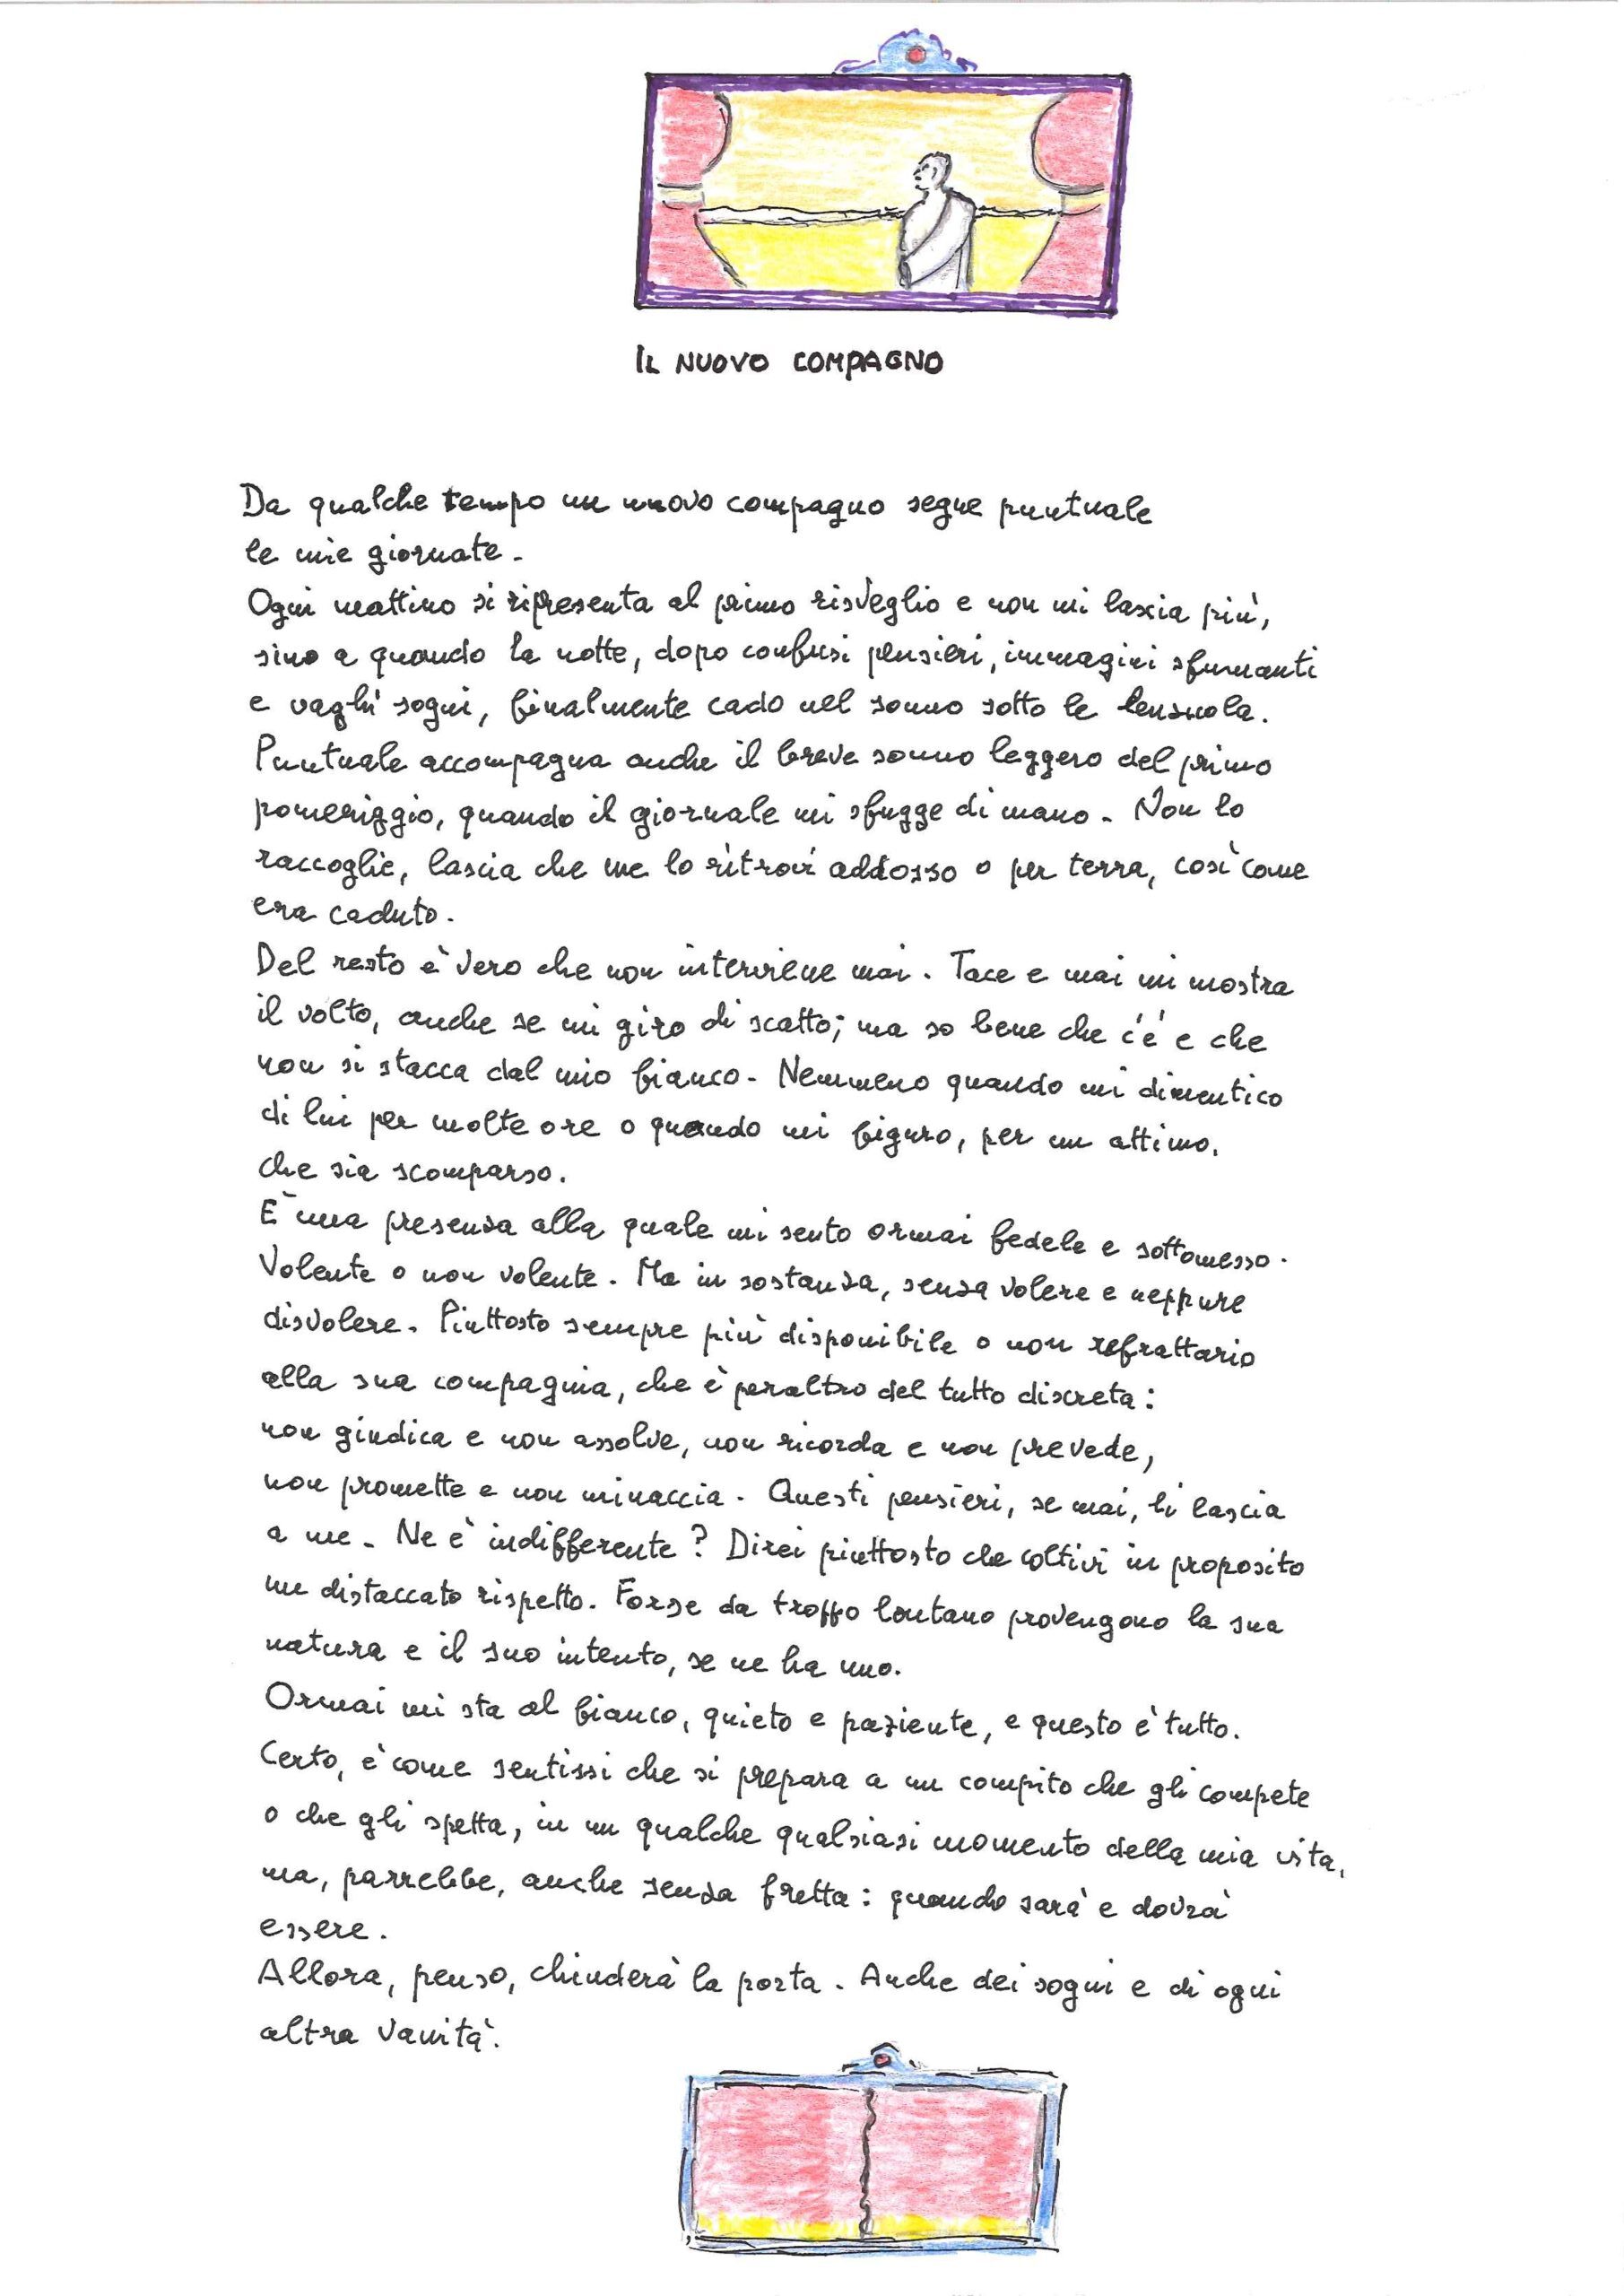 IL NUOVO COMPAGNO
Da qualche tempo un nuovo compagno segue puntuale
le mie giornate.
Ogni mattino si ripresenta al primo risveglio e non mi lascia più,
sino a quando la notte, dopo confusi pensieri, immagini sfumanti
e vaghi sogni, finalmente cado nel sonno sotto le lenzuola.
Puntuale accompagna anche il breve sonno leggero del primo
pomeriggio, quando il giornale mi sfugge di mano. Non lo
raccoglie, lascia che me lo ritrovi addosso o per terra, così come
era caduto.
Del resto è vero che non interviene mai. Tace e mai mi mostra
il volto, anche se mi giro di scatto; ma so bene che c'è e che
non si stacca dal mio fianco. Nemmeno quando mi dimentico
di lui per molte ore o quando mi figuro, per un attimo,
che sia scomparso.
È una presenza alla quale mi sento ormai fedele e sottomesso.
Volente o non volente. Ma in sostanza, senza volere e neppure
disvolere. Piuttosto sempre più disponibile o non refrattario
alla sua compagnia, che è peraltro del tutto discreta:
non giudica e non assolve, non ricorda e non prevede,
non promette e non minaccia. Questi pensieri, se mai, li lascia
a me. Ne è indifferente? Direi piuttosto che coltivi in proposito
un distaccato rispetto. Forse da troppo lontano provengono la sua
natura e il suo intento, se ne ha uno.
Ormai mi sta al fianco, quieto e paziente, e questo è tutto.
Certo, è come sentissi che si prepara a un compito che gli compete
o che gli spetta, in un qualche qualsiasi momento della mia vita,
ma, parrebbe, anche senza fretta: quando sarà e dovrà
essere.
Allora, penso, chiuderà la porta. Anche dei sogni e di ogni
altra vanità.